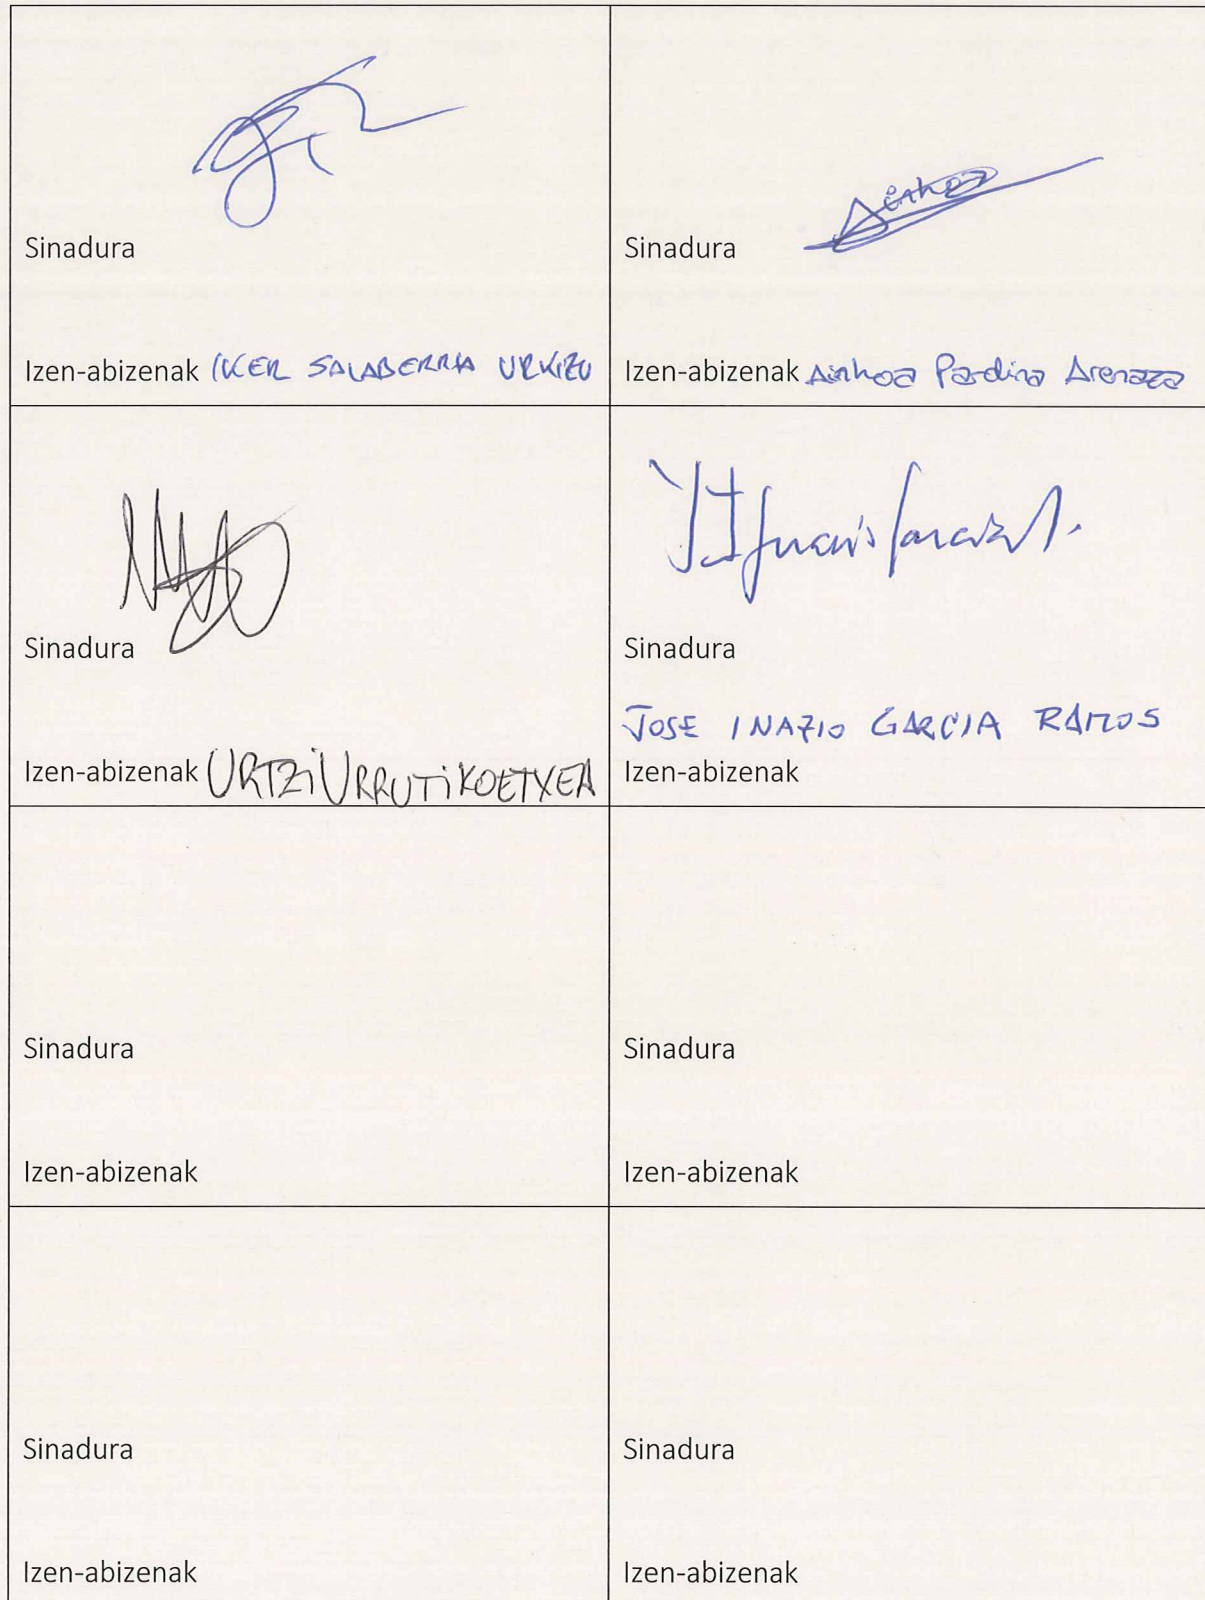 Sinadura
Izen-abizenak IKER SALABERRIA URKIZU
Ainhoa
Sinadura
Izen-abizenak Ainhoa Pardina Arenaza
Sinadura
Izen-abizenak URTZI URRUTIKOETXEA
Sinadura
JOSE INAZIO GARCIA RAMOS
Izen-abizenak
Sinadura
Izen-abizenak
Sinadura
Izen-abizenak
Sinadura
Izen-abizenak
Sinadura
Izen-abizenak